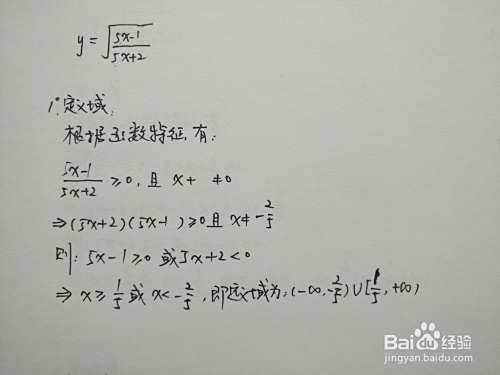 y=√((5x-1)/(5x+2))
1°.定义域:
根据函数特征,有:
(5x-1)/(5x+2) ≥0,且 x+ ≠0
⇒(5x+2)(5x-1)≥0且x≠-2/5
则:5x-1≥0 或5x+2<0
⇒ x≥1/5或x<-2/5,即定义域为:(-∞,-2/5)∪[1/5,+∞)
Baidu经验
jingyan.baidu.com